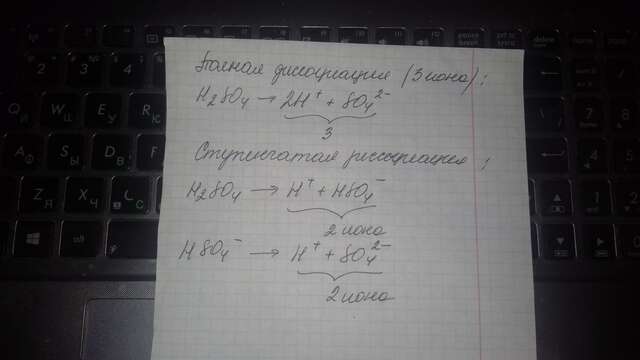 Полная диссоциация (3 иона):
H₂SO₄ → 2H⁺ + SO₄²⁻
3
Ступенчатая диссоциация:
H₂SO₄ → H⁺ + HSO₄⁻
2 иона
HSO₄⁻ → H⁺ + SO₄²⁻
2 иона